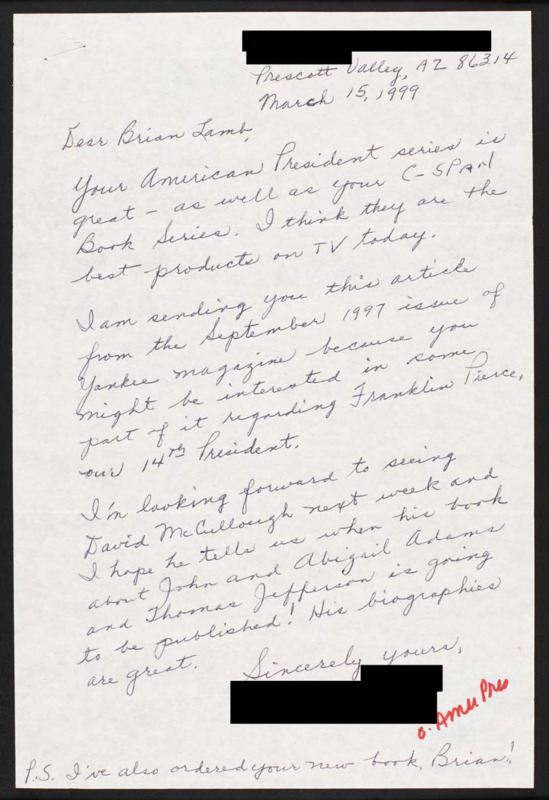 Prescott Valley, AZ 86314
March 15, 1999
Dear Brian Lamb,
Your American President series is
great - as well as your C-SPAN
Book Series. I think they are the
best products on TV today.
I am sending you this article
from the September 1997 issue of
Yankee magazine because you
might be interested in some
part of it regarding Franklin Pierce,
our 14th President.
I'm looking forward to seeing
David McCullough next week and
I hope he tells us when his book
about John and Abigail Adams
and Thomas Jefferson is going
to be published! His biographies
are great.
Sincerely yours,
o. Amer Pres
P.S. I've also ordered your new book, Brian!